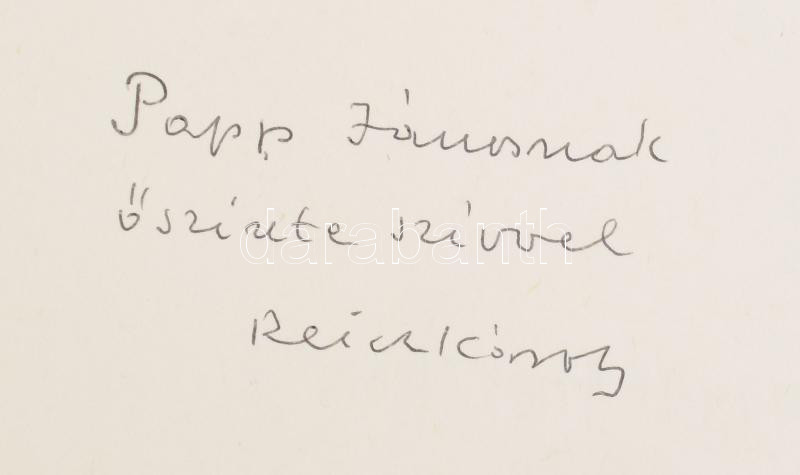 Papp Jánosnak
őszinte szívvel
darabanth
Reich Károly